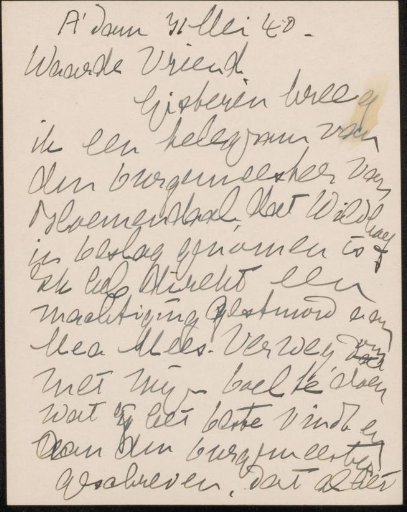 A'dam 31 Mei 40.
Waarde Vriend
Gisteren kreeg
ik een telegram van
den burgemeester van
Bloemendaal dat Wildhoef
in beslag genomen is
Ik heb direkt een
machtiging gestuurd aan
Mea Mees-Verwey om
met mijn boel te doen
wat zij het beste vindt en
aan den burgemeester
geschreven, dat